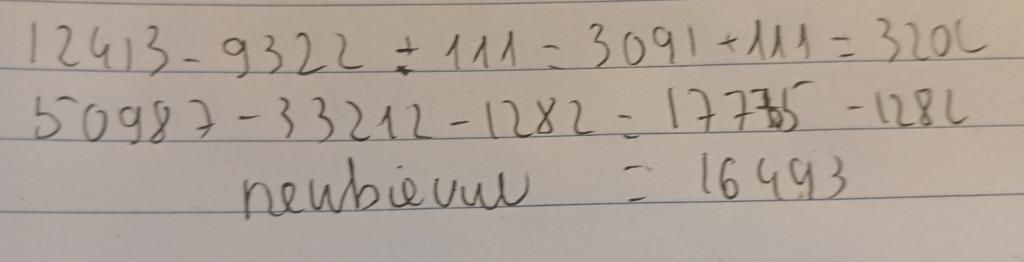 12413 - 9322 + 111 = 3091 + 111 = 3202
50987 - 33212 - 1282 = 17775 - 1282
= 16493